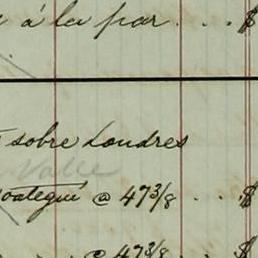 á la par . . . $
sobre Londres
Valle
oategui @ 47 3/8 . . . $
@ 47 3/8 . . . $